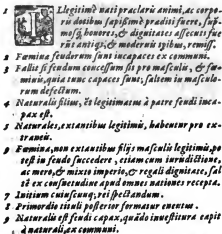 1 Illegitimi nati praclari animi, ac corpo-
ris dotibus sapissimè praditi fuere, sup-
mosq́; honores, & dignitates assecuti fue
rūt antiqs, & modernis tpibus, remiss.
2 Fœmina feudorum sunt incapaces ex communi.
3 Fallit si feudum concessum sit pro masculis, & fœ-
minis, quia tunc capaces sunt, saltem in masculo-
rum defectum.
4 Naturalis filius, & legitimatus à patre feudi inca-
pax est.
5 Naturales, extantibus legitimis, habentur pro ex-
traneis.
6 Fœmina, non extantibus filijs masculis legitimis, po
test in feudo succedere, etiam cum iurisdictione,
ac mero, & mixto imperio, & regali dignitate, sal
tē ex consuetudine apud omnes nationes recepta.
7 Initium cuiuscunq; rei spectandum.
8 Primordio tituli posterior formatur euentus.
9 Naturalis est feudi capax, quādo inuestitura capit
à naturali, ex communi.